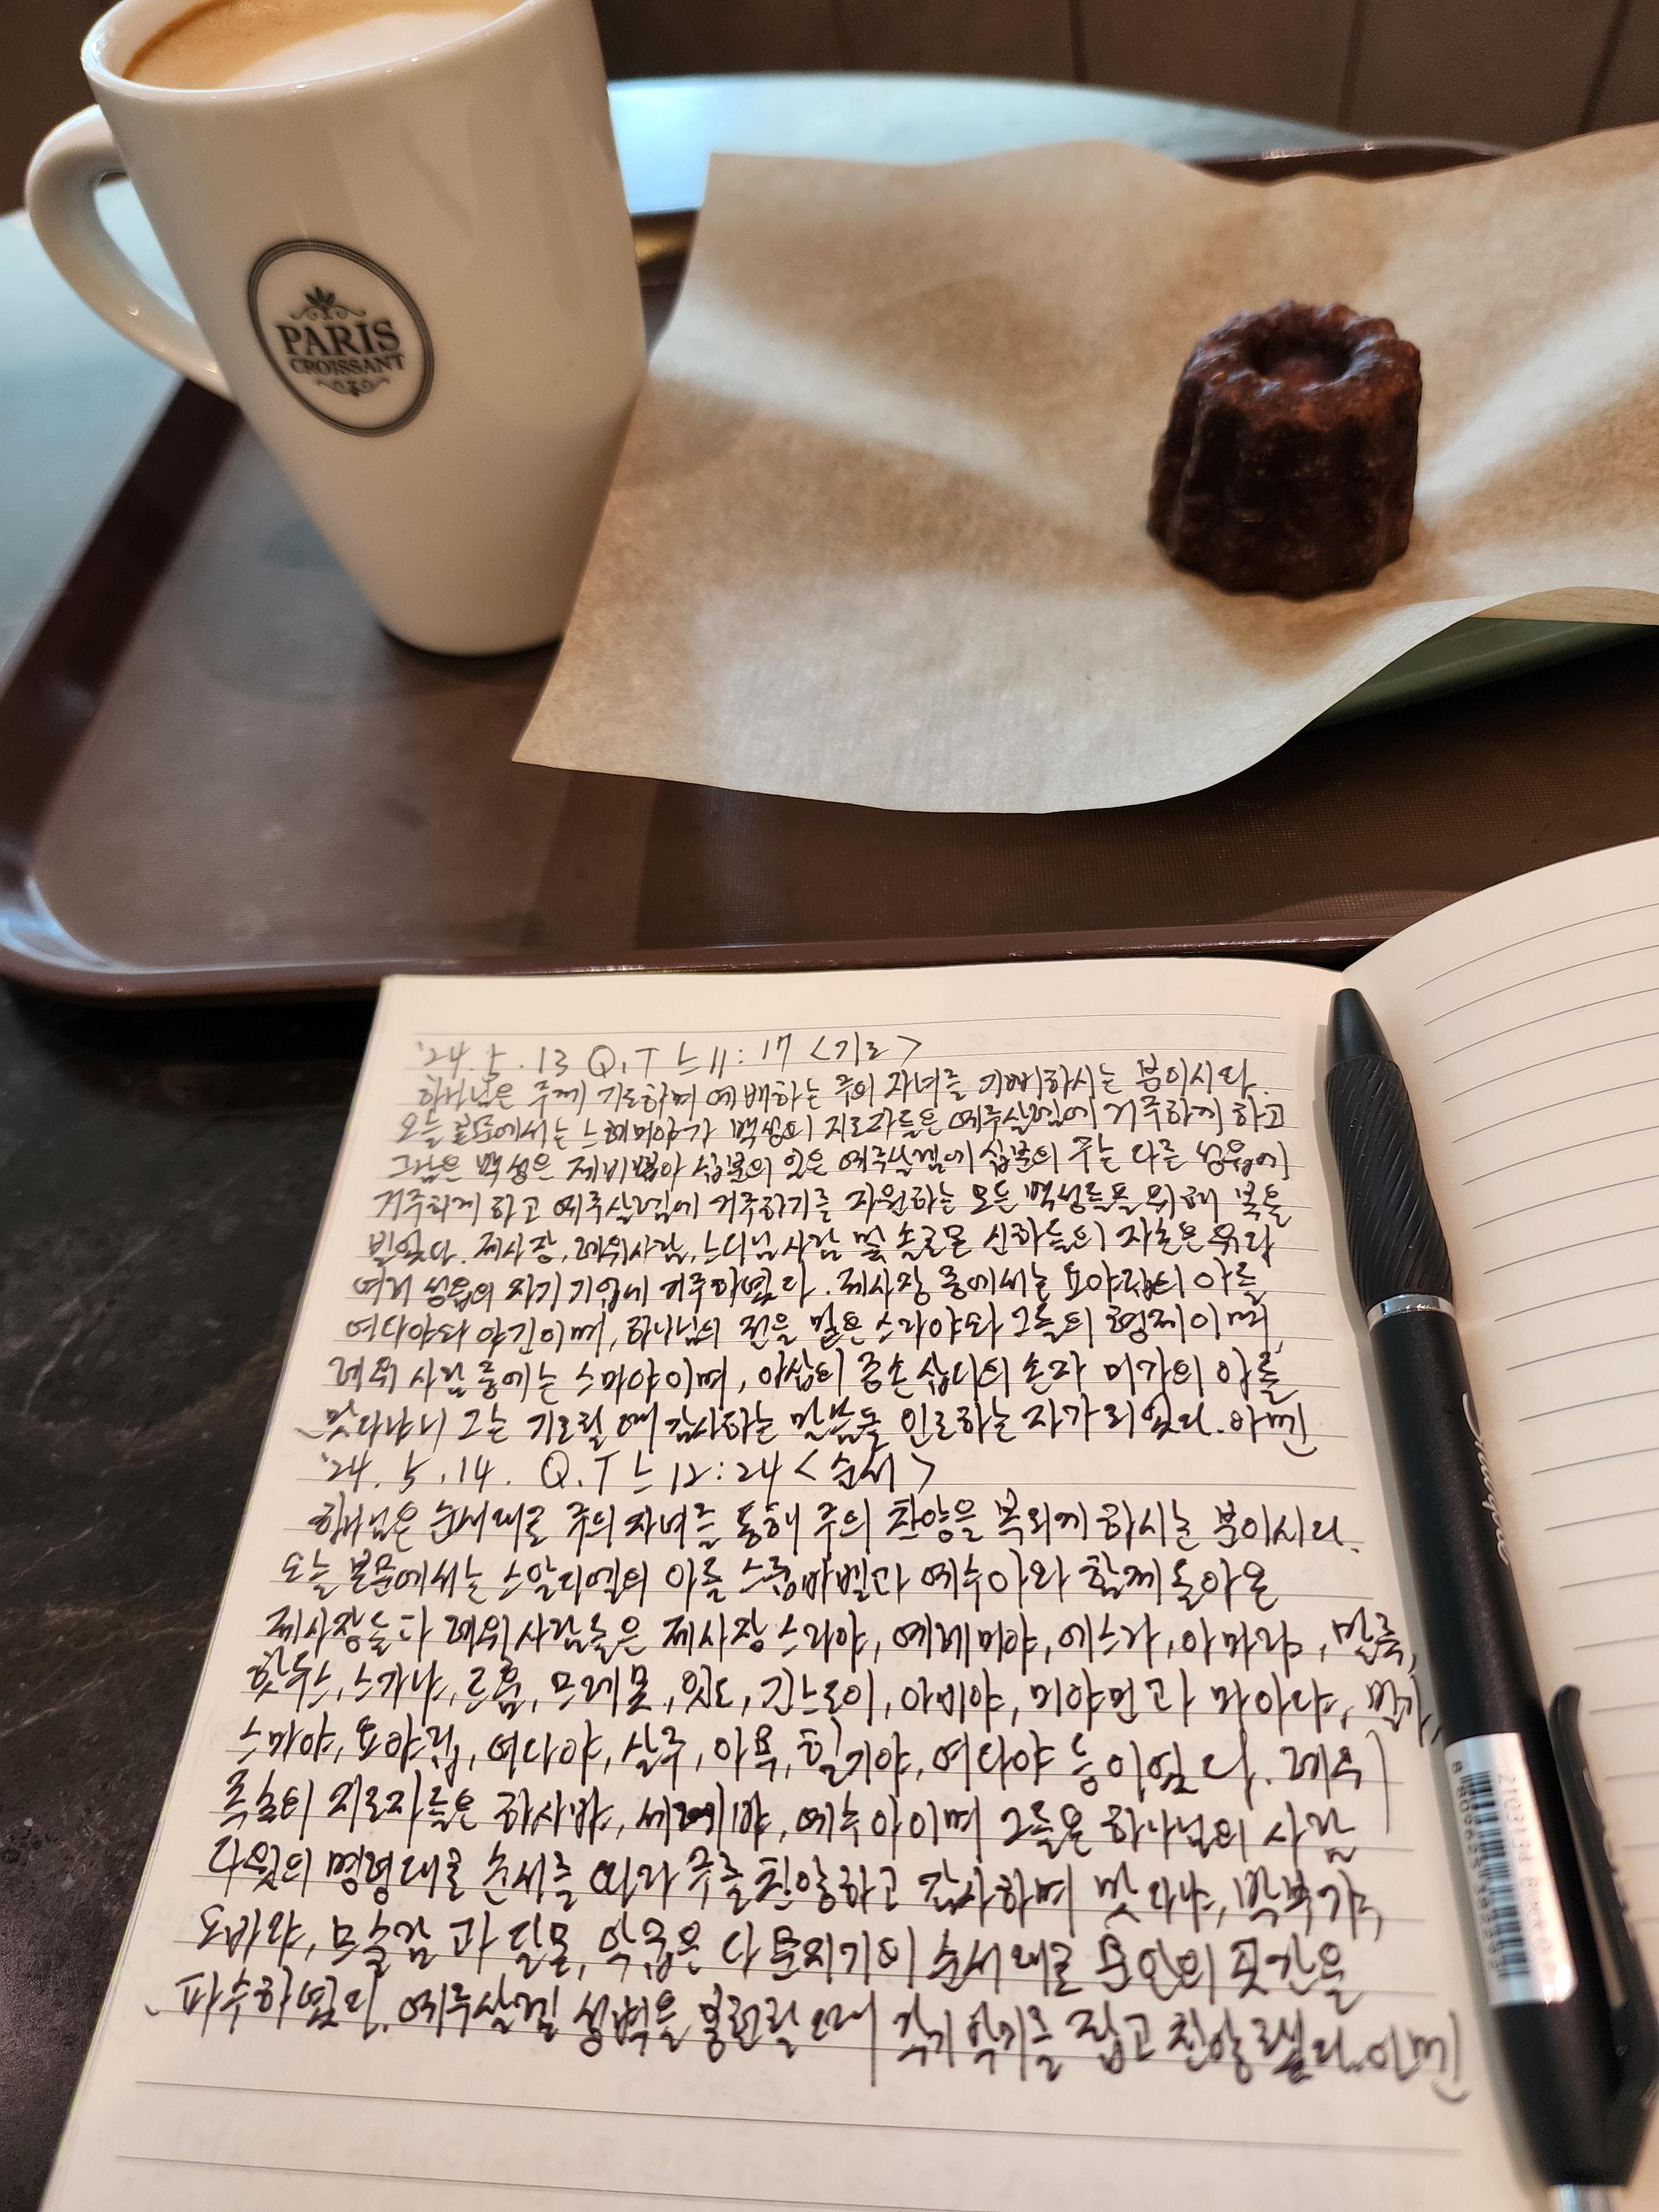 PARIS
CROISSANT
'24. 5. 13 Q.T 느 11:17 <기도>
하나님은 주께 기도하며 예배하는 주의 자녀를 기뻐하시는 분이시다.
오늘 본문에서는 느헤미야가 백성의 지도자들은 예루살렘에 거주하게 하고
그 남은 백성은 제비뽑아 십분의 일은 예루살렘에 십분의 구는 다른 성읍에
거주하게 하고 예루살렘에 거주하기를 자원하는 모든 백성들을 위해 복을
빌었다. 제사장, 레위사람, 느디님 사람 및 솔로몬 신하들의 자손은 유다
여러 성읍의 자기 기업에 거주하였다. 제사장 중에서는 요야립의 아들
여다야와 야긴이며, 하나님의 전을 맡은 스라야와 그들의 형제이며,
레위 사람 중에는 스마야이며, 아삽의 증손 삽디의 손자 미가의 아들
맛다냐니 그는 기도할 때 감사하는 말씀을 인도하는 자가 되었다. 아멘
'24. 5. 14. Q.T 느 12:24 <순서>
하나님은 순서대로 주의 자녀를 통해 주의 찬양을 받으시게 하시는 분이시다.
오늘 본문에서는 스알디엘의 아들 스룹바벨과 예수아와 함께 돌아온
제사장들과 레위사람들은 제사장 스라야, 예레미야, 에스라, 아마랴, 말룩,
핫두스, 스가냐, 르훔, 므레못, 잇도, 긴느도이, 아비야, 미야민과 마아댜, 빌가,
스마야, 요야립, 여다야, 살루, 아목, 힐기야, 여다야 등이었다. 레위
족속의 지도자들은 하사뱌, 세레뱌, 예수아이며 그들은 하나님의 사람
다윗의 명령대로 순서를 따라 주를 찬양하고 감사하며 맛다냐, 박부갸,
오바댜, 므술람과 달몬, 악굽은 다 문지기이 순서대로 문안의 곳간을
파수하였다. 예루살렘 성벽을 봉헌할 때 각기 악기를 잡고 찬양 아멘
Sharpie